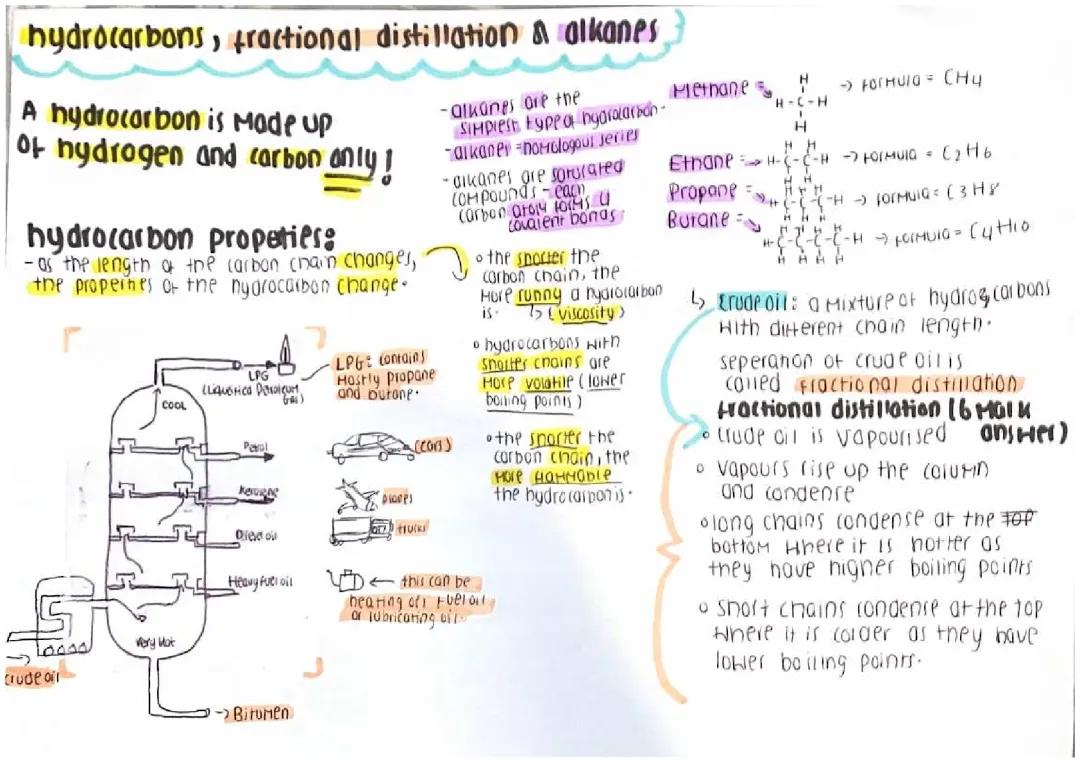 hydrocarbons, fractional distillation & alkanes
A hydrocarbon is made up
of hydrogen and carbon only!
hydrocarbon properties:
- as the length of the carbon chain changes,
the properties of the hydrocarbon change.
- alkanes are the
simplest type of hydrocarbon.
- alkanes = homologous series
- alkanes are saturated
compounds - each
carbon atom forms 4
covalent bonds.
Methane =
H
H-C-H
H
→ formula = CH4
Ethane =
H H
H-C-C-H
→ formula = C2H6
Propane =
H H H
H-C-C-C-H
H H H
→ formula = C3H8
Butane =
H-C-C-C-C-H
H H H H
→ formula = C4H10
• the shorter the
carbon chain, the
more runny a hydrocarbon
is. ↳ (viscosity)
• hydrocarbons with
shorter chains are
more volatile (lower
boiling points)
• the shorter the
carbon chain, the
more flammable
the hydrocarbon is.
↳ crude oil: a mixture of hydrocarbons
with different chain length.
seperation of crude oil is
called fractional distillation
fractional distillation (6 mark
answer)
• crude oil is vapourised
• vapours rise up the column
and condense
• long chains condense at the top
bottom where it is hotter as
they have higher boiling points
• short chains condense at the top
where it is colder as they have
lower boiling points.
LPG
(Liquefied Petroleum
Gas)
LPG: contains
mostly propane
and butane.
COOL
Petrol
(cars)
Kerosene
planes
Diesel oil
trucks
Heavy fuel oil
← this can be
heating oil, fuel oil
or lubricating oil.
Very Hot
crude oil
→ Bitumen